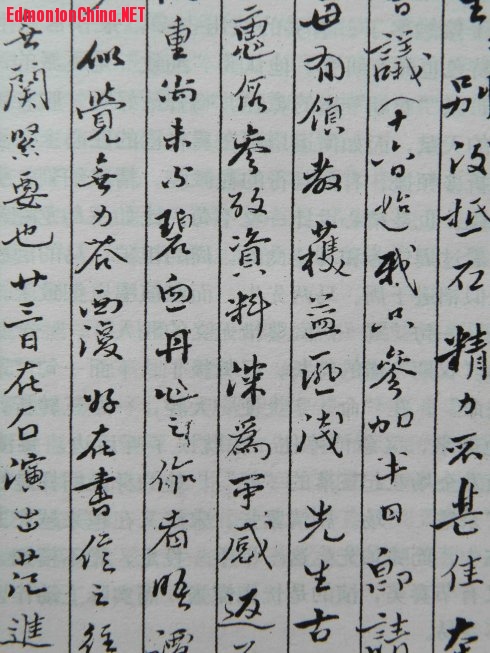 EdmontonChina.NET
别後抵石 精力不甚佳 本
議(十六日迄我只參加半日 即請
有領教獲益匪淺 先生古
惠假參攷資料 深為可感 返
重 尚未與碧血丹心之作者晤
似覺無力答覆 好在書信之往
無關緊要也 廿三日在石演出 進